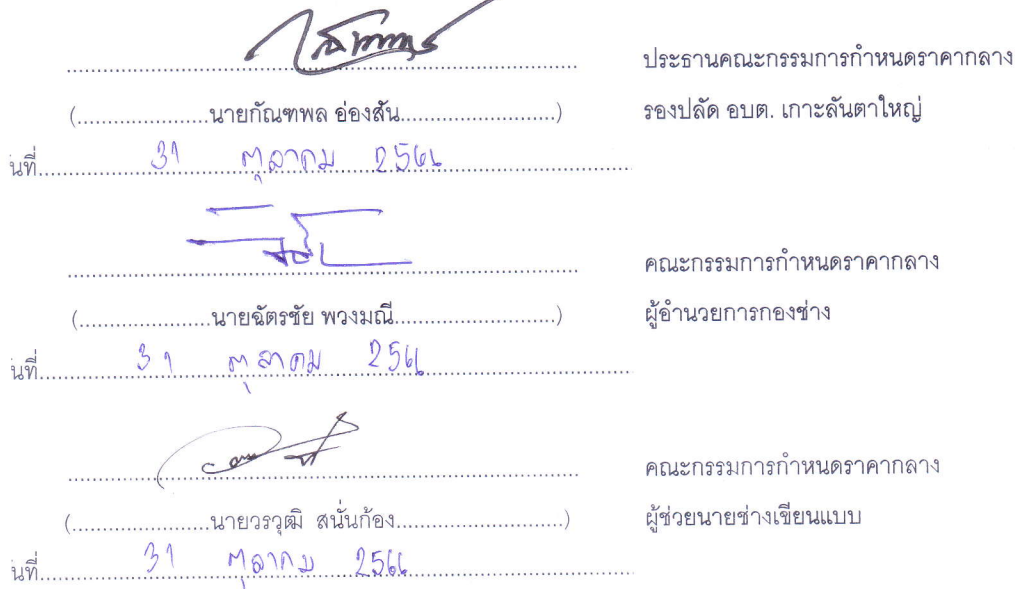 ประธานคณะกรรมการกำหนดราคากลาง
(......................นายกัณฑพล อ่องสัน..........................) รองปลัด อบต. เกาะลันตาใหญ่
นที่ 31 ตุลาคม 2566
คณะกรรมการกำหนดราคากลาง
(......................นายฉัตรชัย พวงมณี...........................) ผู้อำนวยการกองช่าง
นที่ 31 ตุลาคม 2566
คณะกรรมการกำหนดราคากลาง
(.......................นายวรวุฒิ สนั่นก้อง............................) ผู้ช่วยนายช่างเขียนแบบ
นที่ 31 ตุลาคม 2566